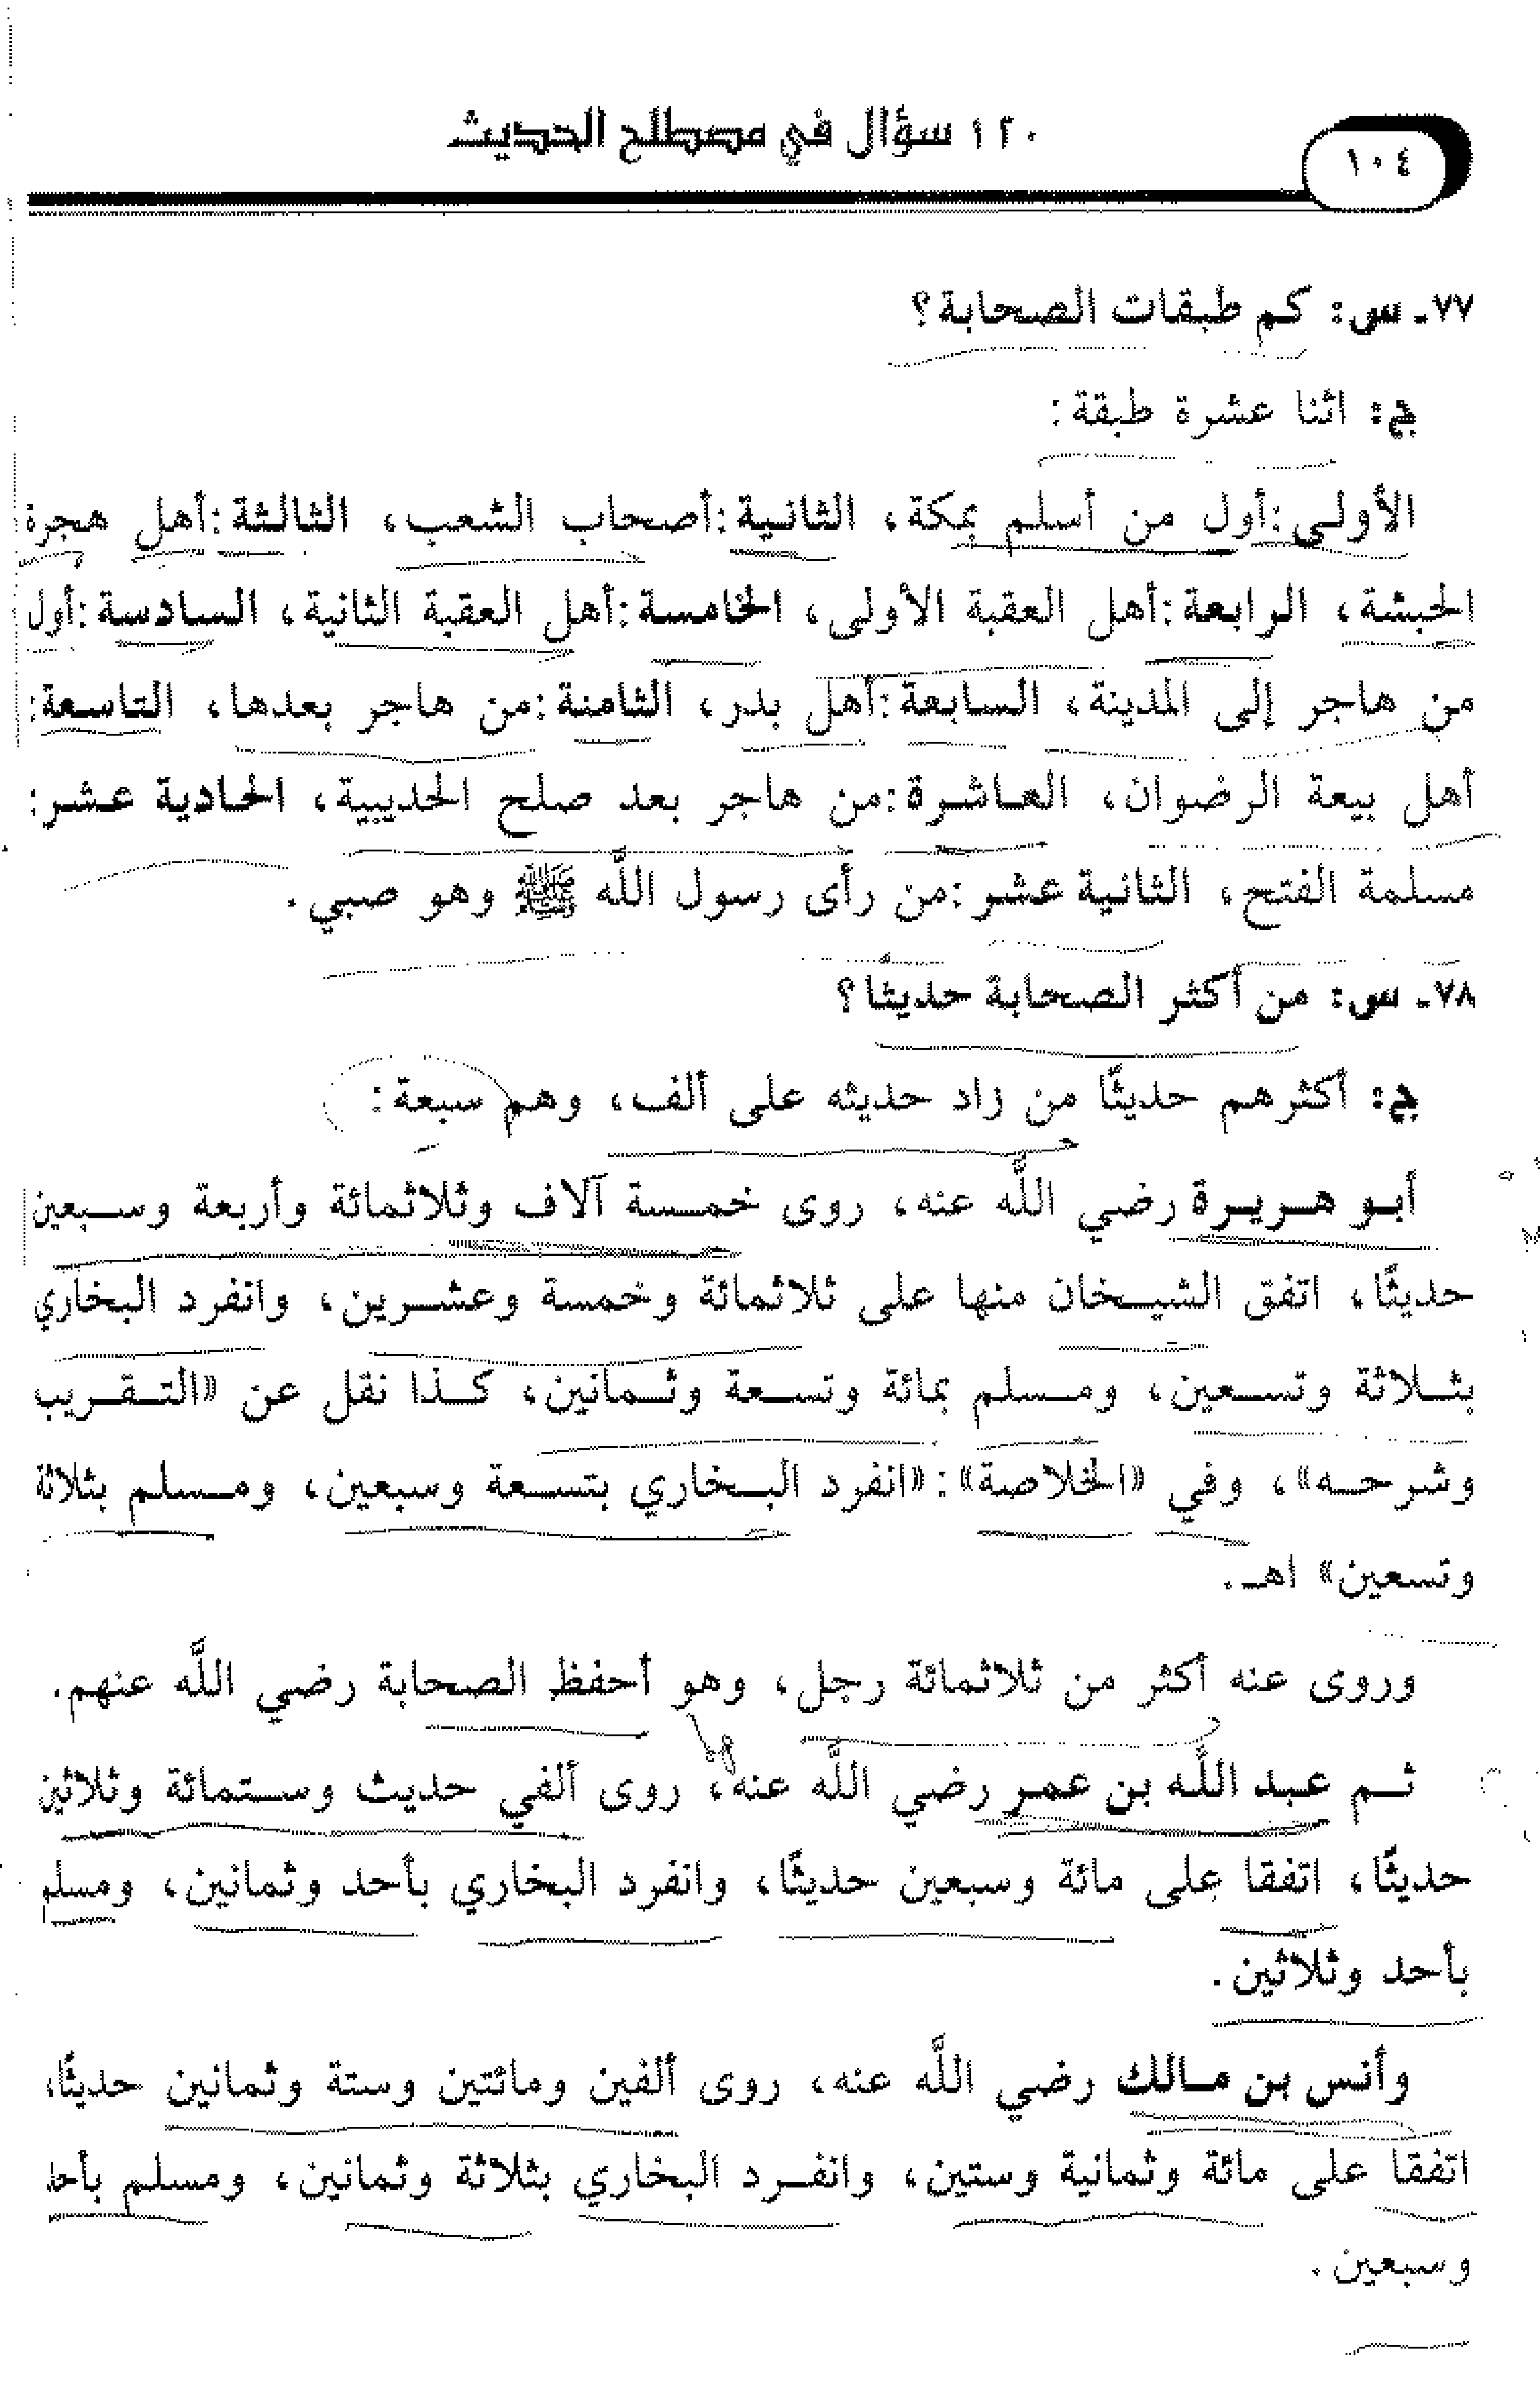 ١٠٤
١٢٠ سؤال في مصطلح الحديث
٧٧ـ س: كم طبقات الصحابة؟
ج: اثنا عشرة طبقة:
الأولى:أول من أسلم بمكة، الثانية:أصحاب الشعب، الثالثة:أهل هجرة
الحبشة، الرابعة:أهل العقبة الأولى، الخامسة:أهل العقبة الثانية، السادسة:أول
من هاجر إلى المدينة، السابعة:أهل بدر، الثامنة:من هاجر بعدها، التاسعة:
أهل بيعة الرضوان، العاشرة:من هاجر بعد صلح الحديبية، الحادية عشر:
مسلمة الفتح، الثانية عشر:من رأى رسول اللَّه ﷺ وهو صبي.
٧٨ـ س: من أكثر الصحابة حديثًا؟
ج: أكثرهم حديثًا من زاد حديثه على ألف، وهم سبعة:
أبو هريرة رضي اللَّه عنه، روى خمسة آلاف وثلاثمائة وأربعة وسبعين
حديثًا، اتفق الشيخان منها على ثلاثمائة وخمسة وعشرين، وانفرد البخاري
بثلاثة وتسعين، ومسلم بمائة وتسعة وثمانين، كذا نقل عن «التقريب
وشرحه»، وفي «الخلاصة»: «انفرد البخاري بتسعة وسبعين، ومسلم بثلاثة
وتسعين» اهـ.
وروى عنه أكثر من ثلاثمائة رجل، وهو أحفظ الصحابة رضي اللَّه عنهم.
ثم عبد اللَّه بن عمر رضي اللَّه عنه، روى ألفي حديث وستمائة وثلاثين
حديثًا، اتفقا على مائة وسبعين حديثًا، وانفرد البخاري بأحد وثمانين، ومسلم
بأحد وثلاثين.
وأنس بن مالك رضي اللَّه عنه، روى ألفين ومائتين وستة وثمانين حديثًا،
اتفقا على مائة وثمانية وستين، وانفرد البخاري بثلاثة وثمانين، ومسلم بأحد
وسبعين.